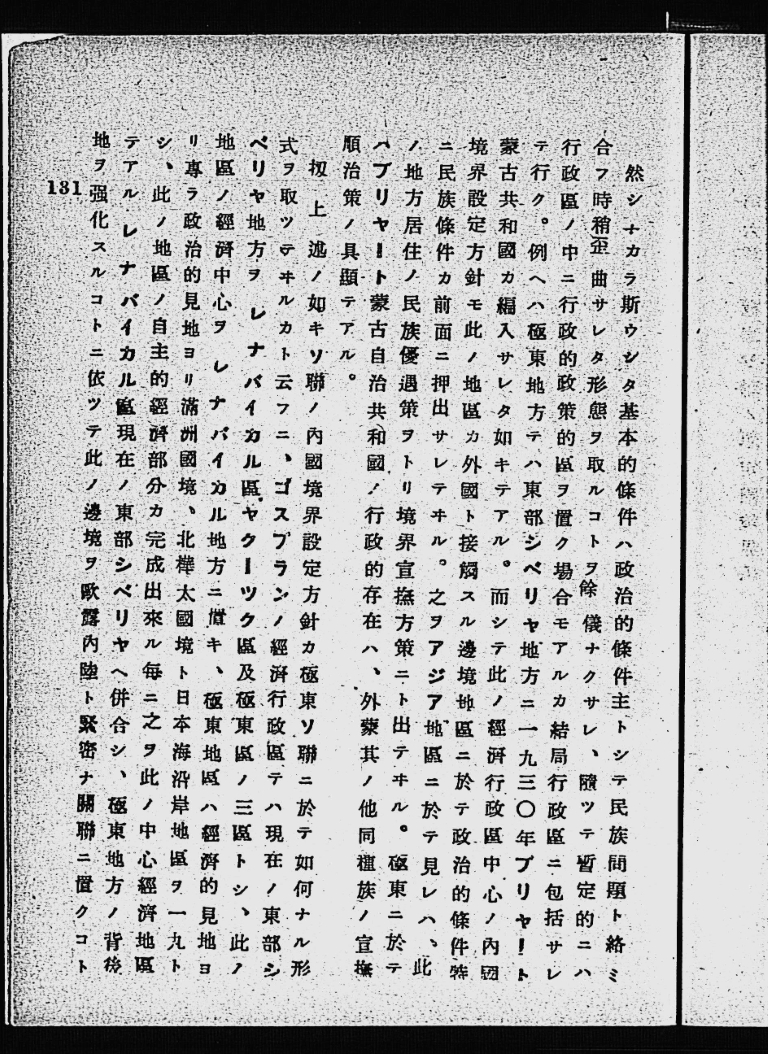 然シナカラ斯ウシタ基本的條件ハ政治的條件主トシテ民族問題ト絡ミ
合フ時稍歪曲サレタ形態ヲ取ルコトヲ餘儀ナクサレ、隨ツテ暫定的ニハ
行政區ノ中ニ行政的政策的區ヲ置ク場合モアルカ結局行政區ニ包括サレ
テ行ク。例ヘハ極東地方テハ東部シベリヤ地方ニ一九三〇年ブリヤート
蒙古共和國カ編入サレタ如キテアル。而シテ此ノ經濟行政區中心ノ內國
境界設定方針モ此ノ地區カ外國ト接觸スル邊境地區ニ於テ政治的條件特
ニ民族條件カ前面ニ押出サレテヰル。之ヲアジア地區ニ於テ見レハ、此
ノ地方居住ノ民族優遇策ヲトリ境界宣撫方策ニト出テヰル。極東ニ於テ
ハブリヤート蒙古自治共和國ノ行政的存在ハ、外蒙其ノ他同種族ノ宣撫
順治策ノ具顯テアル。
扨上述ノ如キソ聯ノ內國境界設定方針カ極東ソ聯ニ於テ如何ナル形
式ヲ取ツテヰルカト云フニ、ゴスプランノ經濟行政區テハ現在ノ東部シ
ベリヤ地方ヲレナバイカル區ヤクーツク區及極東區ノ三區トシ、此ノ
地區ノ經濟中心ヲレナバイカル地方ニ置キ、極東地區ハ經濟的見地ヨ
リ專ラ政治的見地ヨリ滿洲國境、北樺太國境ト日本海沿岸地區ヲ一丸ト
シ、此ノ地區ノ自主的經濟部分カ完成出來ル每ニ之ヲ此ノ中心經濟地區
テアルレナバイカル區現在ノ東部シベリヤヘ併合シ、極東地方ノ背後
地ヲ强化スルコトニ依ツテ此ノ邊境ヲ歐露內陸ト緊密ナ關聯ニ置クコト
131